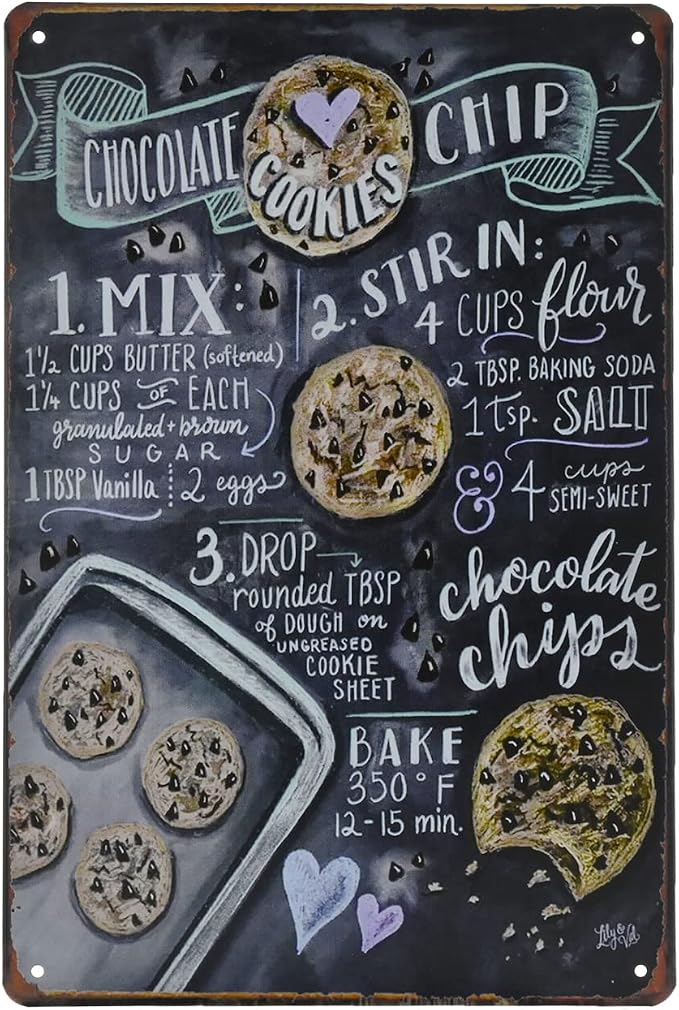 CHOCOLATE CHIP
COOKIES
1. MIX:
1 1/2 CUPS BUTTER (softened)
1 1/4 CUPS OF EACH
granulated + brown
SUGAR
1 TBSP Vanilla 2 eggs
2. STIR IN:
4 CUPS flour
2 TBSP. BAKING SODA
1 tsp. SALT
& 4 cups
SEMI-SWEET
chocolate
chips
3. DROP
rounded TBSP
of DOUGH on
UNGREASED
COOKIE
SHEET
BAKE
350°F
12-15 min.
Lily & Val